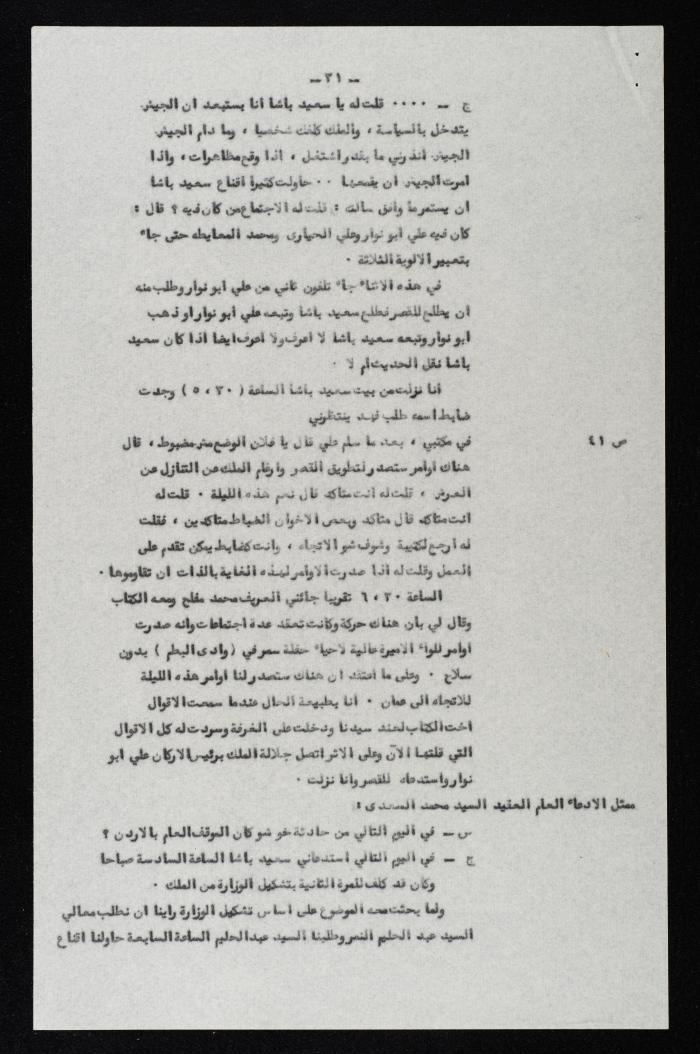 ــ ٣١ ــ
ج ــ ٠٠٠٠ قلت له يا سعيد باشا انا بستبعد ان الجيش
يتدخل بالسياسة ، والملك كلفك شخصيا ، وما دام الجيش
الجيش انذرني ما بقدر اشتغل ، اذا وقع مظاهرات ، واذا
امرت الجيش ان يقمعها ٠٠ حاولت كثيرا اقناع سعيد باشا
ان يستمر ما وافق سالته : قلت له الاجتماع من كان فيه ؟ قال :
كان فيه علي ابو نوار وعلي الحياري ومحمد المعايطه حتى جاء
بتعبير الالوية الثلاثة ٠
في هذه الاثناء جاء تلفون ثاني من علي ابو نوار وطلب منه
ان يطلع للقصر فطلع سعيد باشا وتبعه علي ابو نوار او ذهب
ابو نوار وتبعه سعيد باشا لا اعرف ولا اعرف ايضا اذا كان سعيد
باشا نقل الحديث ام لا ٠
انا نزلت من بيت سعيد باشا الساعة ( ٥،٣٠ ) وجدت
ضابط اسمه طلب فهد ينتظرني
ص ٤١
في مكتبي ، بعد ما سلم علي قال يا فلان الوضع مش مضبوط ، قال
هناك اوامر ستصدر لتطويق القصر وارغام الملك عن التنازل عن
العرش ، قلت له انت متاكد قال نعم هذه الليلة ٠ قلت له
انت متاكد قال متاكد وبعض الاخوان الضباط متاكدين ، فقلت
له ارجع لكتيبة وشوف شو الاتجاه ، وانت كضابط يمكن تقدم على
العمل وقلت له اذا صدرت الاوامر لهذه الغاية بالذات ان تقاوموها ٠
الساعة ٦،٣٠ تقريبا جائني العريف محمد مفلح ومعه الكتاب
وقال لي بان هناك حركة وكانت تعقد عدة اجتماعات وانه صدرت
اوامر للواء الاميرة عالية لاحياء حفلة سمر في ( وادى البطم ) بدون
سلاح ٠ وعلى ما اعتقد ان هناك ستصدر لنا اوامر هذه الليلة
للاتجاه الى عمان ٠ انا بطبيعة الحال عندما سمعت الاقوال
اخت الكتاب لعند سيدنا ودخلت على الغرفة وسردت له كل الاقوال
التي قلتها الآن وعلى الاثر اتصل جلالة الملك برئيس الاركان علي ابو
نوار واستدعاه للقصر وانا نزلت ٠
ممثل الادعاء العام العقيد السيد محمد السعدى :
س ــ في اليوم التالي من حادثة خو شو كان الموقف العام بالاردن ؟
ج ــ في اليوم التالي استدعاني سعيد باشا الساعة السادسة صباحا
وكان قد كلف للمرة الثانية بتشكيل الوزارة من الملك ٠
ولما بحثت معه الموضوع على اساس تشكيل الوزارة راينا ان نطلب معالي
السيد عبد الحليم النمر وطلبنا السيد عبد الحليم الساعة السابعة حاولنا اقناع